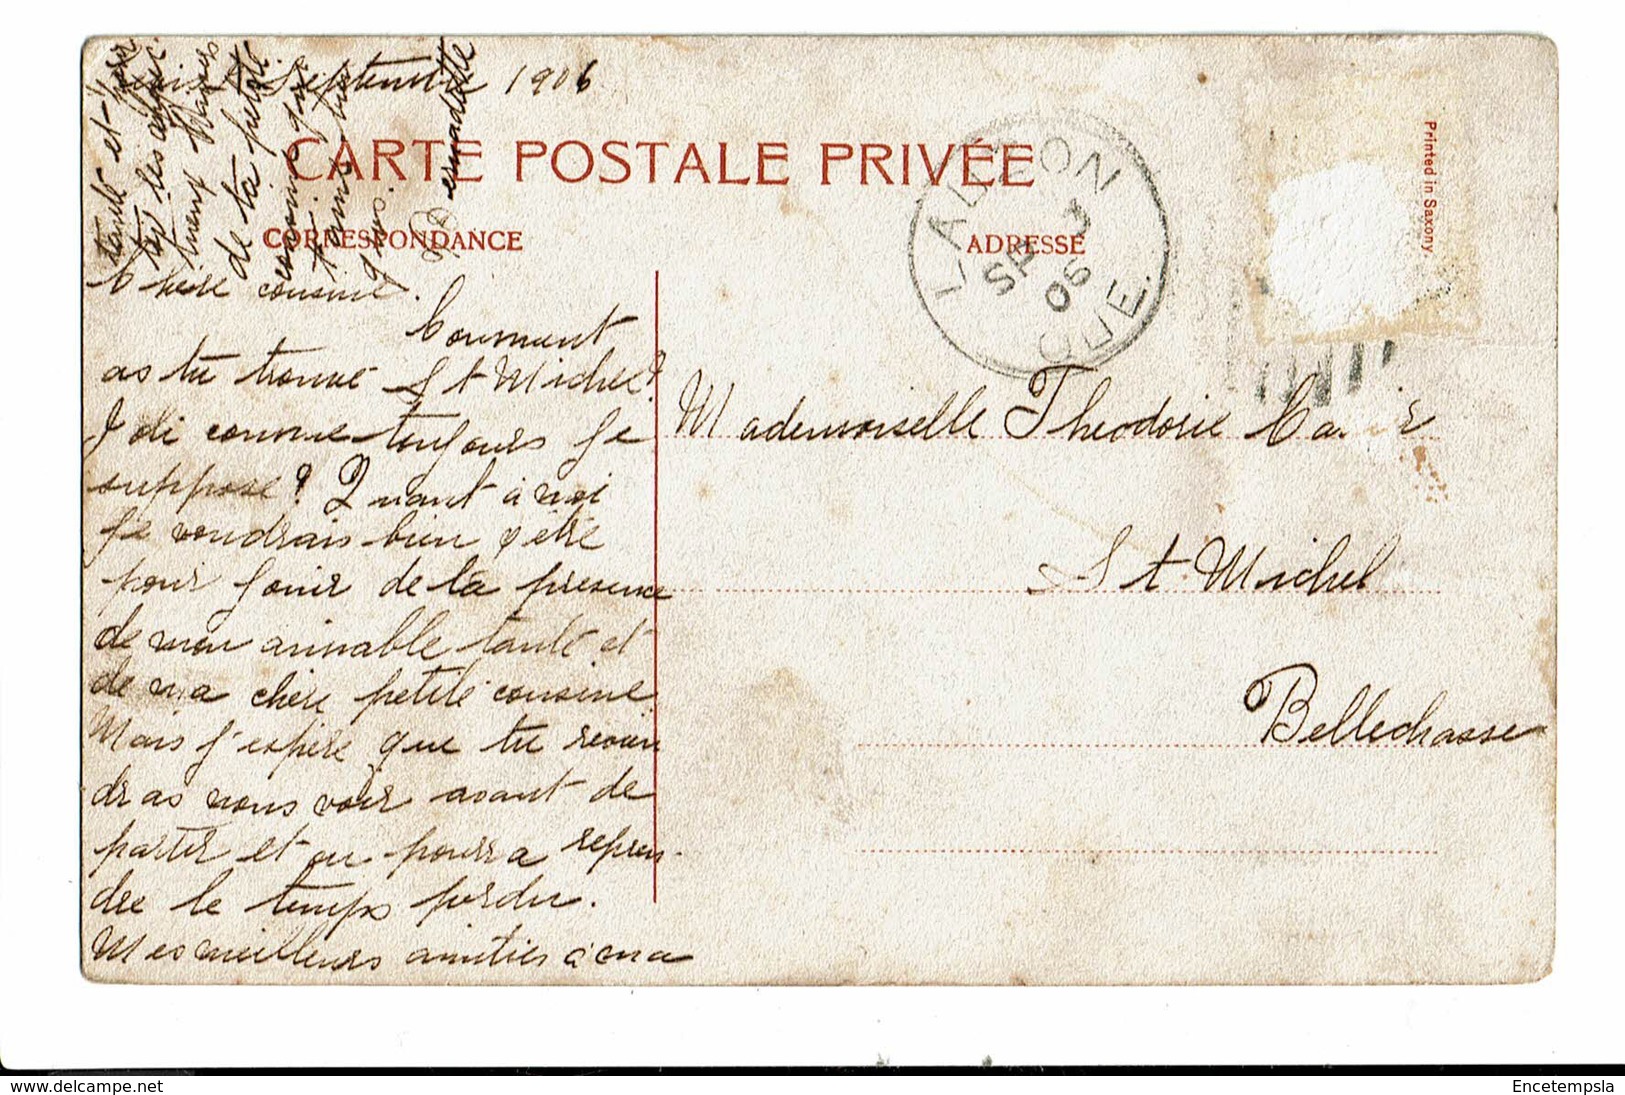 Septembre 1906
CARTE POSTALE PRIVÉE
CORRESPONDANCE
ADRESSE
Printed in Saxony.
LAUZON
SP
06
QUE.
Chère cousine.
Comment
as tu trouvé St Michel?
Joli comme toujours je
suppose? Quant à moi
je voudrais bien y être
pour jouir de la présence
de mon aimable tante et
de ma chère petite cousine
Mais j'espère que tu revien
dras nous voir avant de
partir et on pourra repren-
dre le temps perdu.
Mes meilleurs amitiés à ma
tante et
de ta petite
cousine qui
Bernadette
Mademoiselle Théodorie
St Michel
Bellechasse
www.delcampe.net
Encetempsla